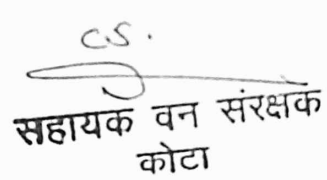 CS.
सहायक वन संरक्षक
कोटा